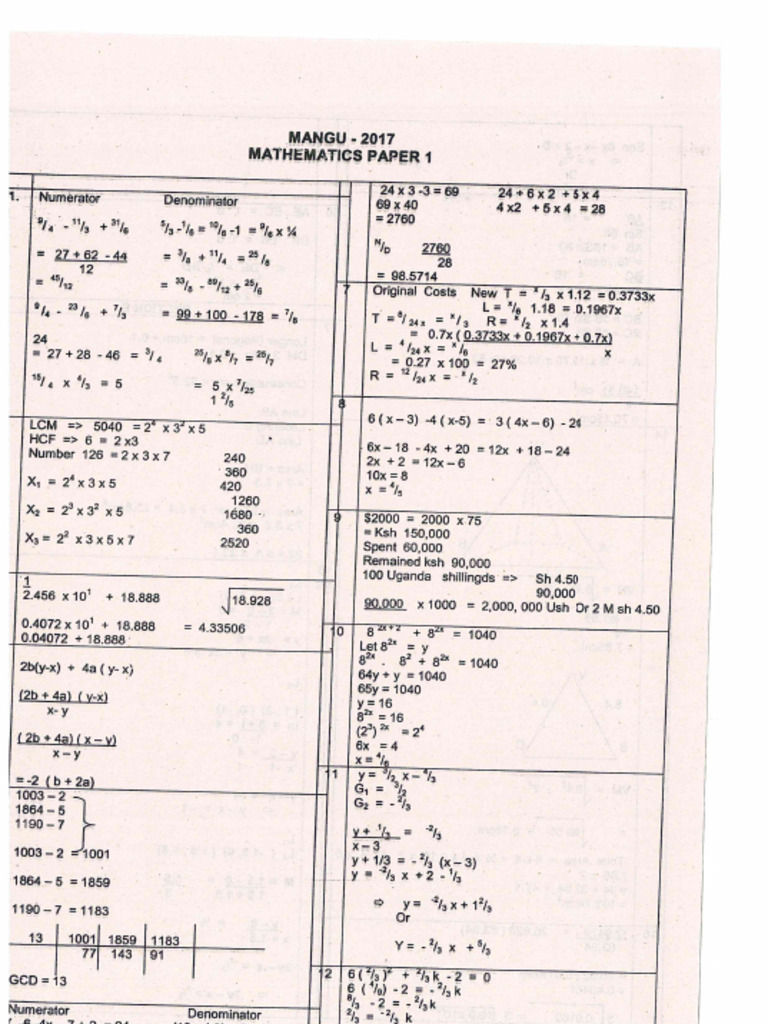 MANGU - 2017
MATHEMATICS PAPER 1
1. Numerator Denominator
9/4 - 11/3 + 31/6 5/3 - 1/6 = 10/6 -1 = 9/6 x ¼
= 27 + 62 - 44 = 3/8 + 11/4 = 25/8
12
= 45/12 = 33/5 - 89/12 + 25/6
9/4 - 23/6 + 7/3 = 99 + 100 - 178 = 7/5
24
= 27 + 28 - 46 = 3/4 25/8 x 8/7 = 25/7
15/4 x 4/3 = 5 = 5 x 7/25
1 2/5
LCM => 5040 = 2⁴ x 3² x 5
HCF => 6 = 2 x3
Number 126 = 2 x 3 x 7 240
360
X₁ = 2⁴ x 3 x 5 420
1260
X₂ = 2³ x 3² x 5 1680
360
X₃ = 2² x 3 x 5 x 7 2520
1
2.456 x 10¹ + 18.888 √18.928
0.4072 x 10¹ + 18.888 = 4.33506
0.04072 + 18.888
2b(y-x) + 4a ( y- x)
(2b + 4a) ( y-x)
x- y
( 2b + 4a) ( x – y)
x – y
= -2 ( b + 2a)
1003 – 2
1864 – 5
1190 – 7
1003 – 2 = 1001
1864 – 5 = 1859
1190 – 7 = 1183
13 1001 1859 1183
77 143 91
GCD = 13
Numerator Denominator
24 x 3 -3 = 69 24 + 6 x 2 + 5 x 4
69 x 40 4 x2 + 5 x 4 = 28
= 2760
N/D 2760
28
= 98.5714
7 Original Costs New T = x/3 x 1.12 = 0.3733x
L = x/6 1.18 = 0.1967x
T = 8/24 x = x/3 R = x/2 x 1.4
= 0.7x ( 0.3733x + 0.1967x + 0.7x)
L = 4/24 x = x/6 x
= 0.27 x 100 = 27%
R = 12/24 x = x/2
8
6 ( x – 3) -4 ( x-5) = 3 ( 4x – 6) - 24
6x – 18 - 4x + 20 = 12x + 18 – 24
2x + 2 = 12x – 6
10x = 8
x = 4/5
9 $2000 = 2000 x 75
= Ksh 150,000
Spent 60,000
Remained ksh 90,000
100 Uganda shillingds => Sh 4.50
90,000
90,000 x 1000 = 2,000, 000 Ush Or 2 M sh 4.50
10 8 2x + 2 + 8 2x = 1040
Let 8 2x = y
8 2x . 8² + 8 2x = 1040
64y + y = 1040
65y = 1040
y = 16
8 2x = 16
(2³) 2x = 2⁴
6x = 4
x = 4/6
11 y = 3/2 x – 4/3
G₁ = 3/2
G₂ = - 2/3
y + 1/3 = -2/3
x – 3
y + 1/3 = - 2/3 (x – 3)
y = -2/3 x + 2 - 1/3
⇨ y = -2/3 x + 1 2/3
Or
Y = - 2/3 x + 5/3
12 6 ( 2/3 )² + 2/3 k - 2 = 0
6 ( 4/9) - 2 = - 2/3 k
8/3 - 2 = - 2/3 k
2/3 = - 2/3 k